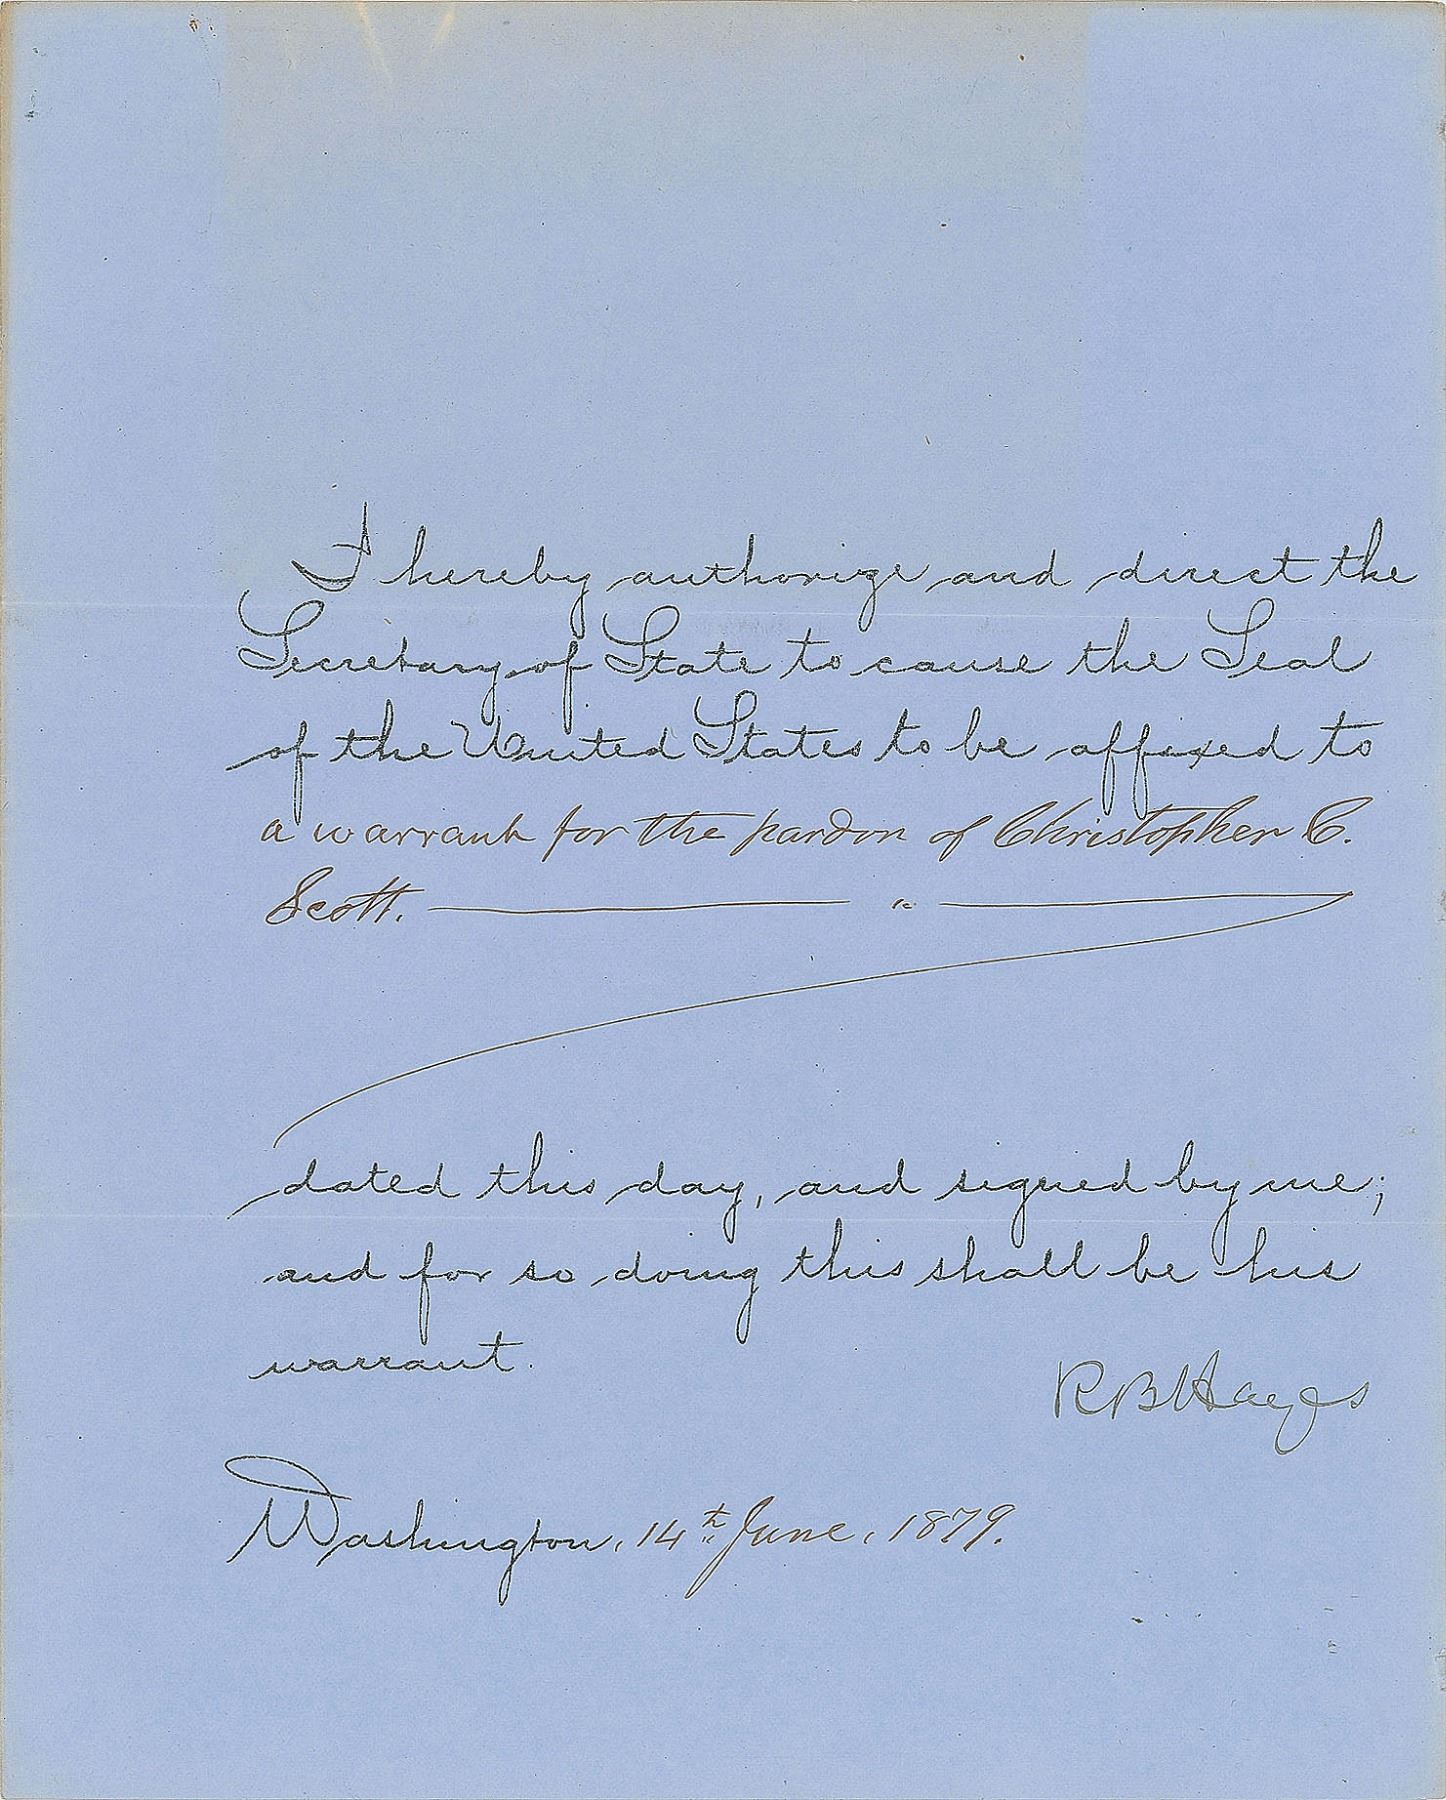 I hereby authorize and direct the
Secretary of State to cause the Seal
of the United States to be affixed to
a warrant for the pardon of Christopher C.
Scott.
dated this day, and signed by me;
and for so doing this shall be his
warrant.
R B Hayes
Washington, 14th June, 1879.